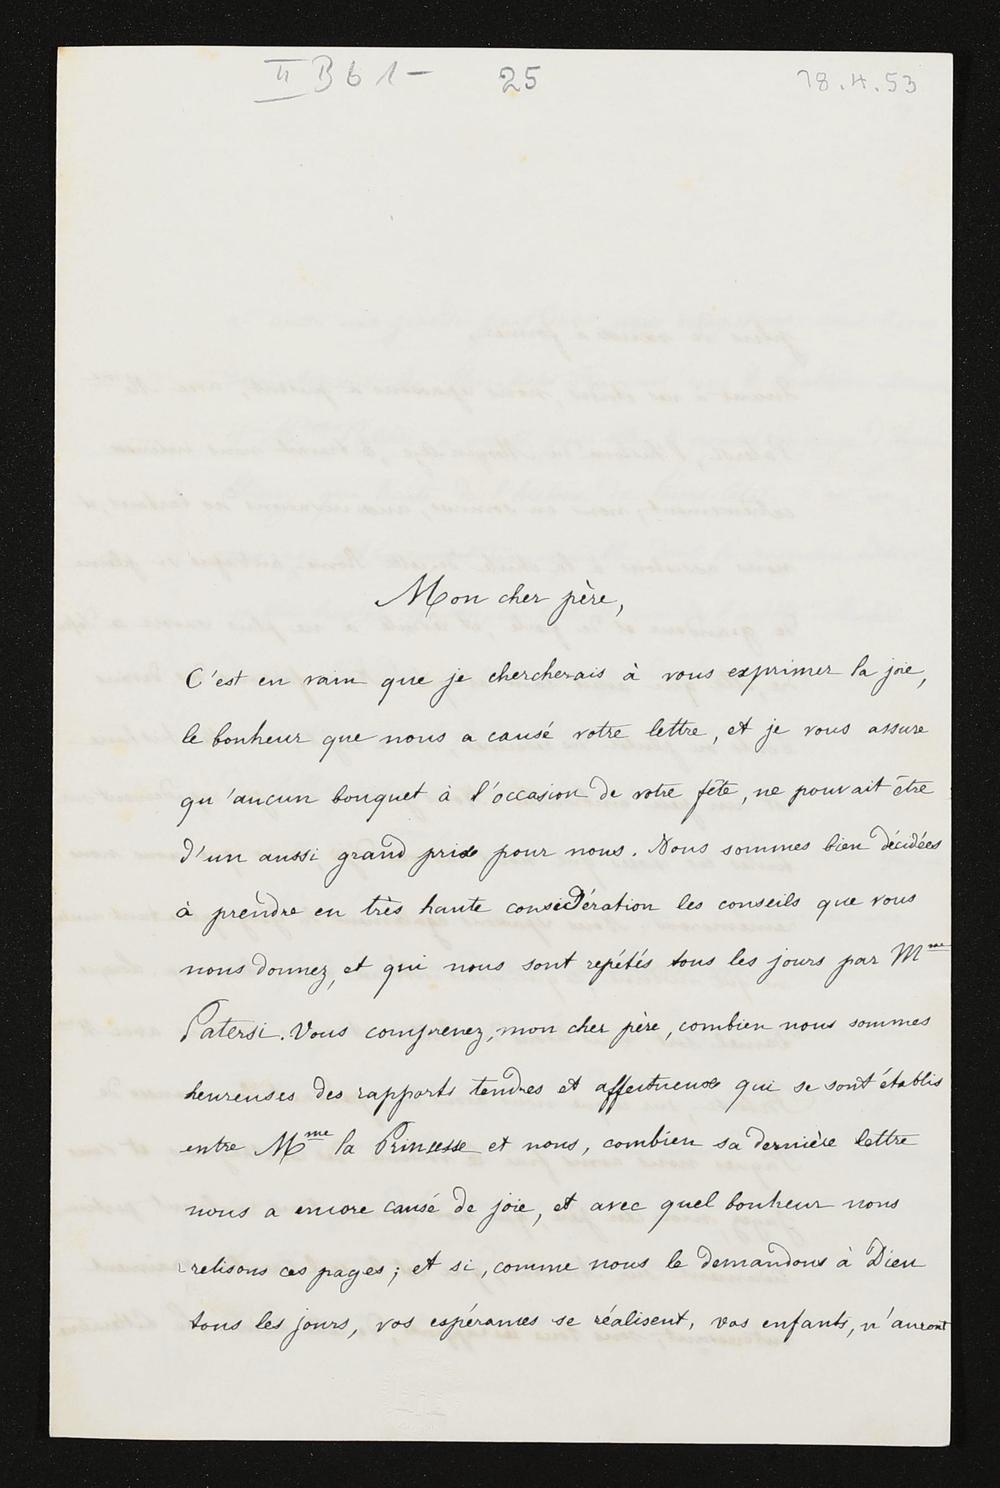 II B b 1 – 25 18.4.53
Mon cher père,
C'est en vain que je chercherais à vous exprimer la joie,
le bonheur que nous a causé votre lettre, et je vous assure
qu'aucun bouquet à l'occasion de votre fête, ne pouvait être
d'un aussi grand prix pour nous. Nous sommes bien décidées
à prendre en très haute considération les conseils que vous
nous donnez, et qui nous sont repétés tous les jours par Mme
Patersi. Vous comprenez, mon cher père, combien nous sommes
heureuses des rapports tendres et affectueux qui se sont établis
entre Mme la Princesse et nous, combien sa dernière lettre
nous a encore causé de joie, et avec quel bonheur nous
relisons ces pages; et si, comme nous le demandons à Dieu
tous les jours, vos espérances se réalisent, vos enfants, n'auront